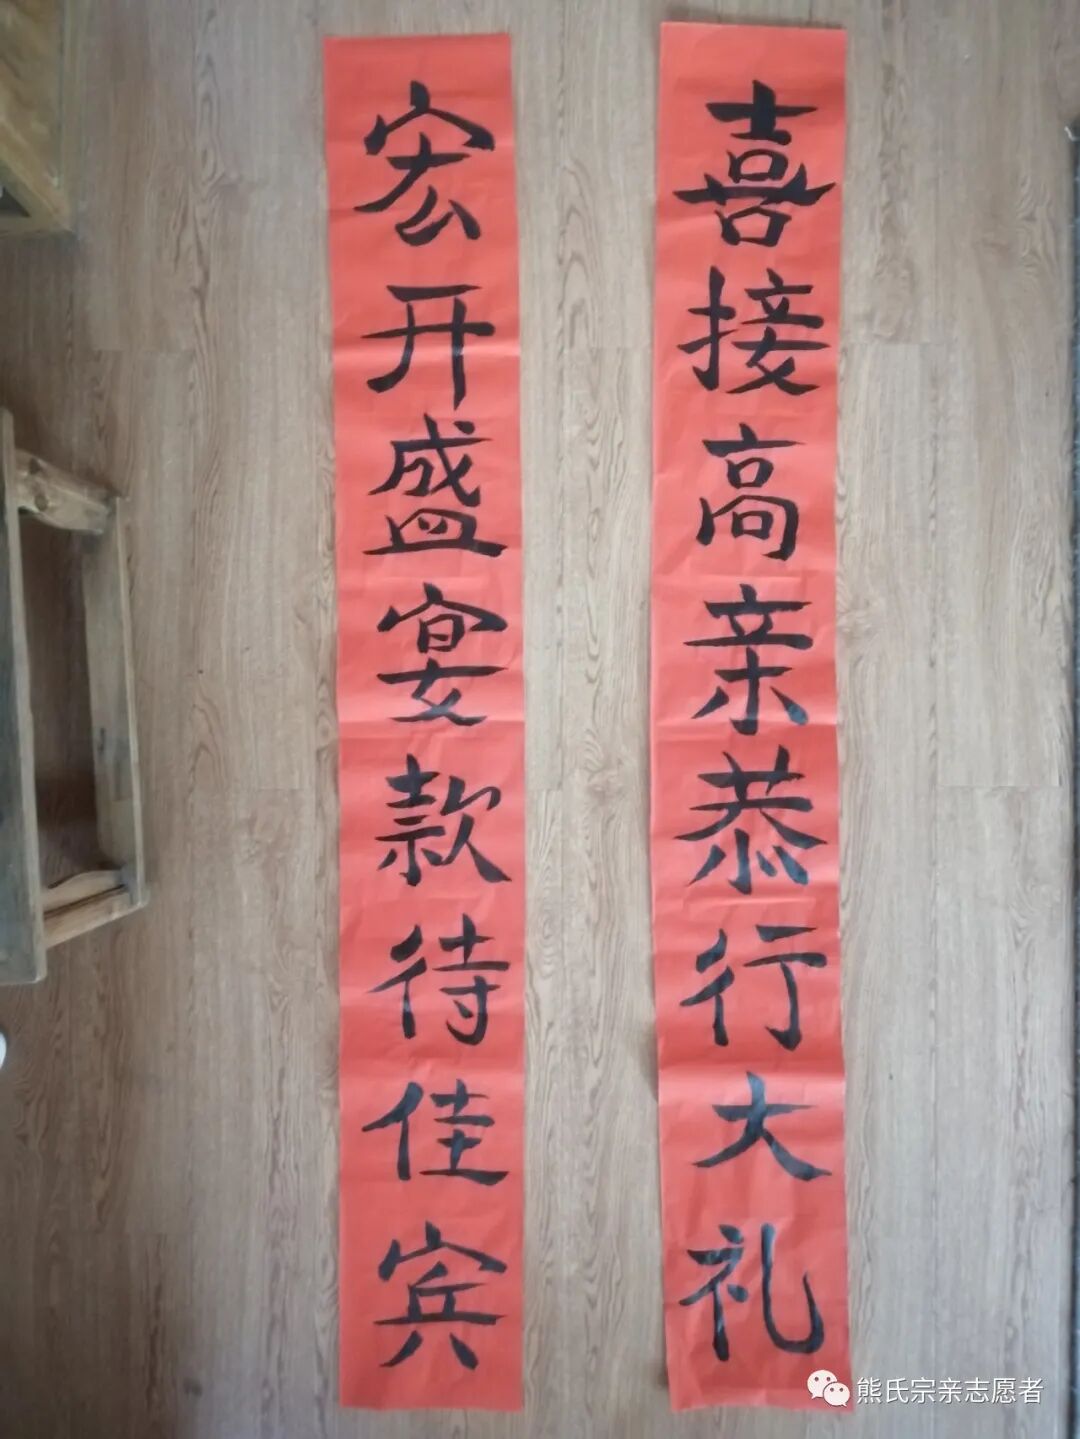 喜接高亲恭行大礼
宏开盛宴款待佳宾
熊氏宗亲志愿者